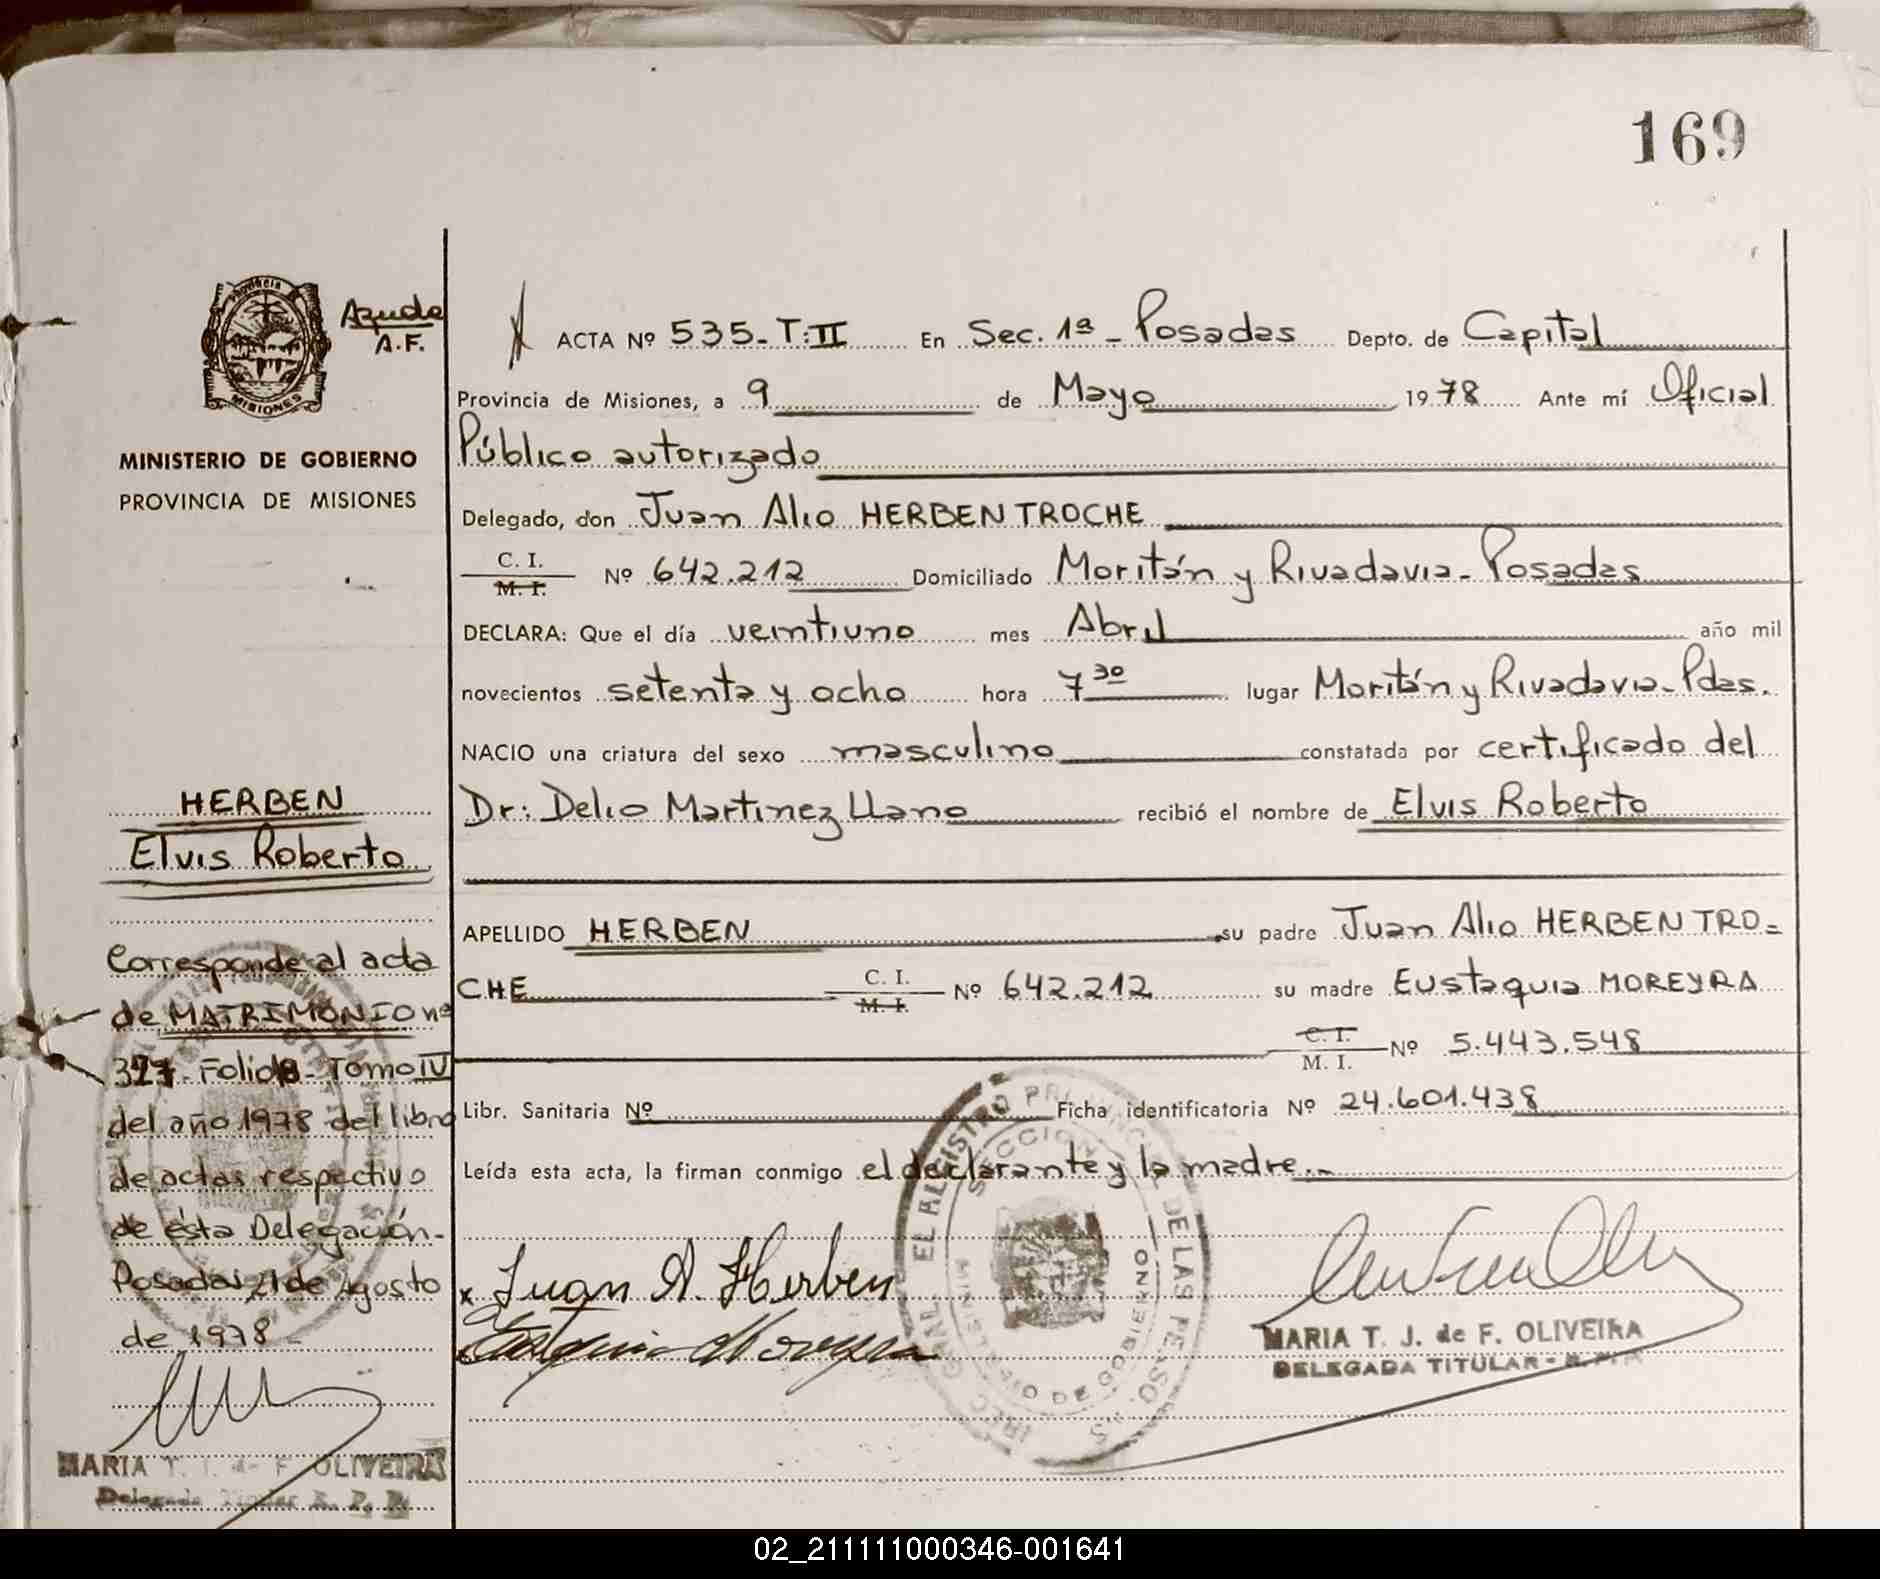 169
Provincia
MISIONES
Ayuda
A.F.
MINISTERIO DE GOBIERNO
PROVINCIA DE MISIONES
ACTA Nº 535-T:II En Sec. 1ª - Posadas Depto. de Capital
Provincia de Misiones, a 9 de Mayo 1978 Ante mí Oficial
Público autorizado
Delegado, don Juan Alio HERBEN TROCHE
C. I.
M. I. Nº 642.212 Domiciliado Moritán y Rivadavia - Posadas
DECLARA: Que el día veintiuno mes Abril año mil
novecientos setenta y ocho hora 7 30 lugar Moritán y Rivadavia - Pdas.
NACIO una criatura del sexo masculino constatada por certificado del
Dr: Delio Martinez Llano recibió el nombre de Elvis Roberto
APELLIDO HERBEN su padre Juan Alio HERBEN TRO=
CHE C. I.
M. I. Nº 642.212 su madre Eustaquia MOREYRA
C. I.
M. I. Nº 5.443.548
Libr. Sanitaria Nº Ficha identificatoria Nº 24.601.438
Leída esta acta, la firman conmigo el declarante y la madre.-
x Juan A. Herben
MARIA T. J. de F. OLIVEIRA
DELEGADA TITULAR -
SECCION
MINISTERIO DE GOBIERNO
HERBEN
Elvis Roberto
Corresponde al acta
de MATRIMONIO nº
Folio Tomo IV
del año 1978 del libro
de actas respectivo
de ésta Delegación.-
Posadas, 21 de Agosto
de 1978-
MARIA T. J. de F. OLIVEIRA
Delegada Titular R. P. P.
02_211111000346-001641